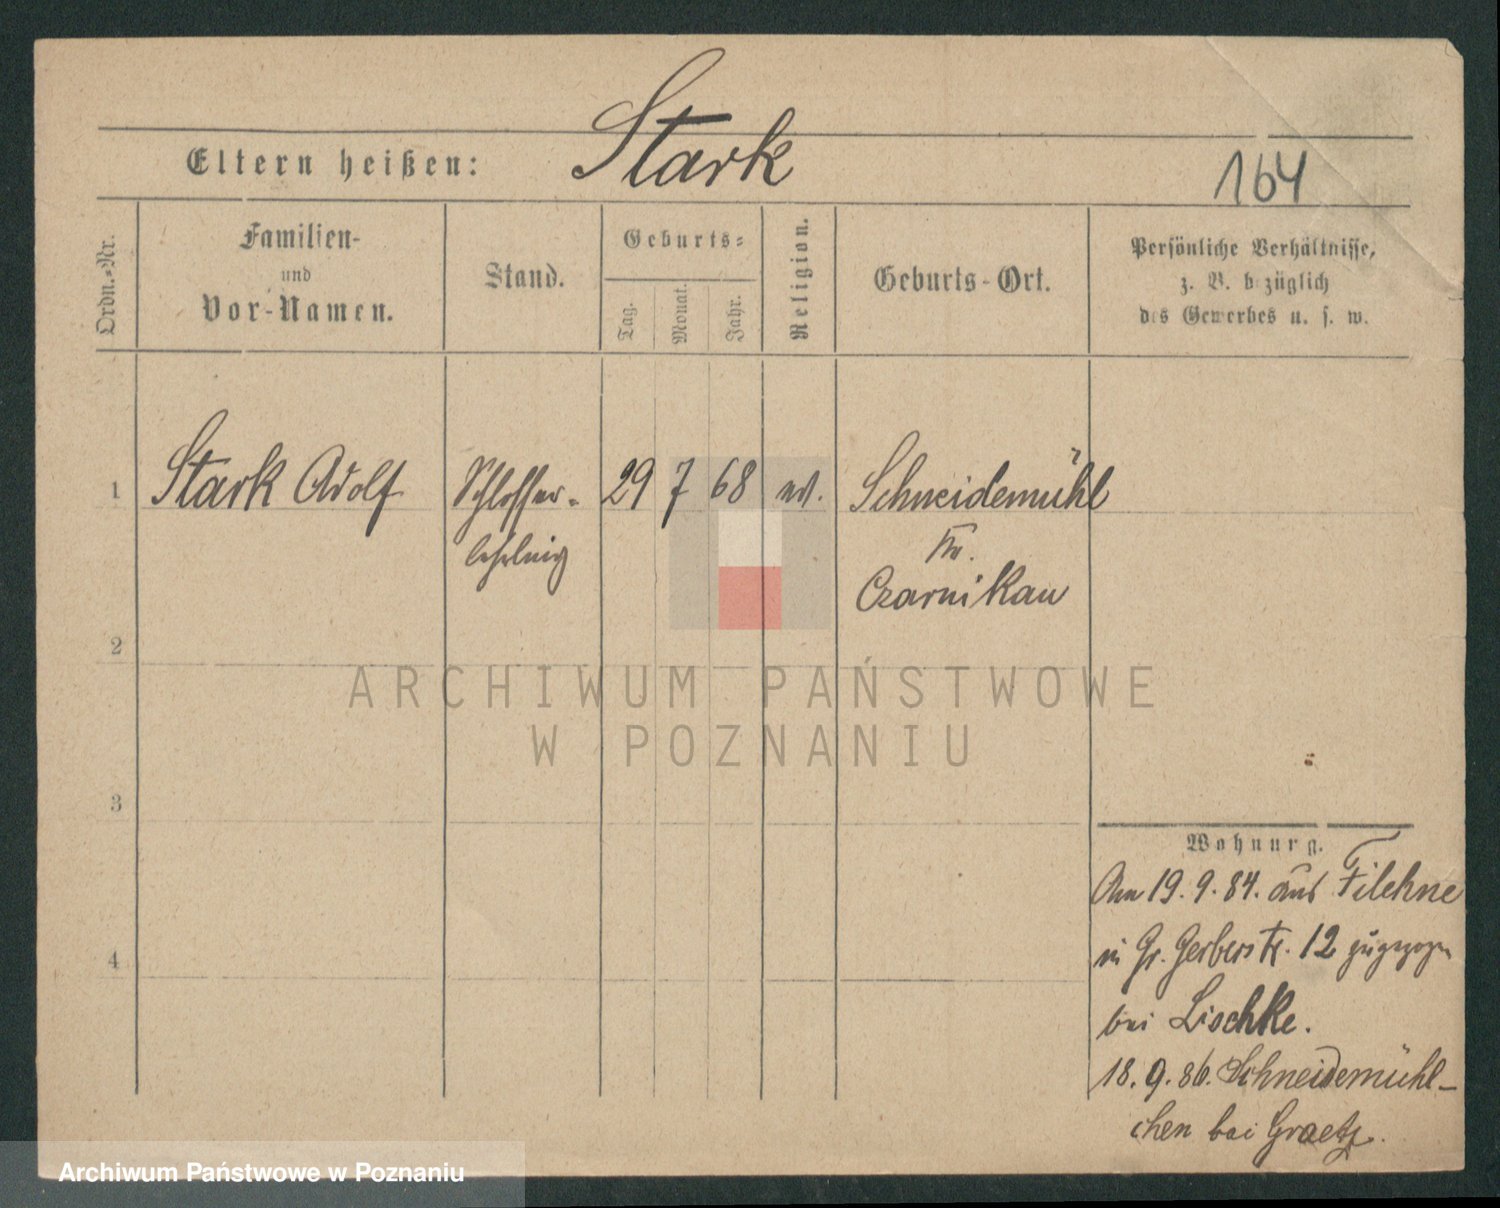 Stark
Eltern heißen:
164
Ordn.-Nr.
Familien-
und
Vor-Namen.
Stand.
Geburts-
Tag.
Monat.
Jahr.
Religion.
Geburts-Ort.
Persönliche Verhältnisse,
z. B. bezüglich
des Gewerbes u. s. w.
1
Stark Adolf
Schlosser-
lehrling
29
7
68
ev.
Schneidemühl
Kr.
Czarnikau
2
ARCHIWUM PAŃSTWOWE
W POZNANIU
3
4
Wohnung.
Am 19. 9. 84. aus Filehne
in Gr. Gerberstr. 12 zugezogen
bei Lischke.
18. 9. 86. Schneidemühl-
chen bei Graetz.
Archiwum Państwowe w Poznaniu